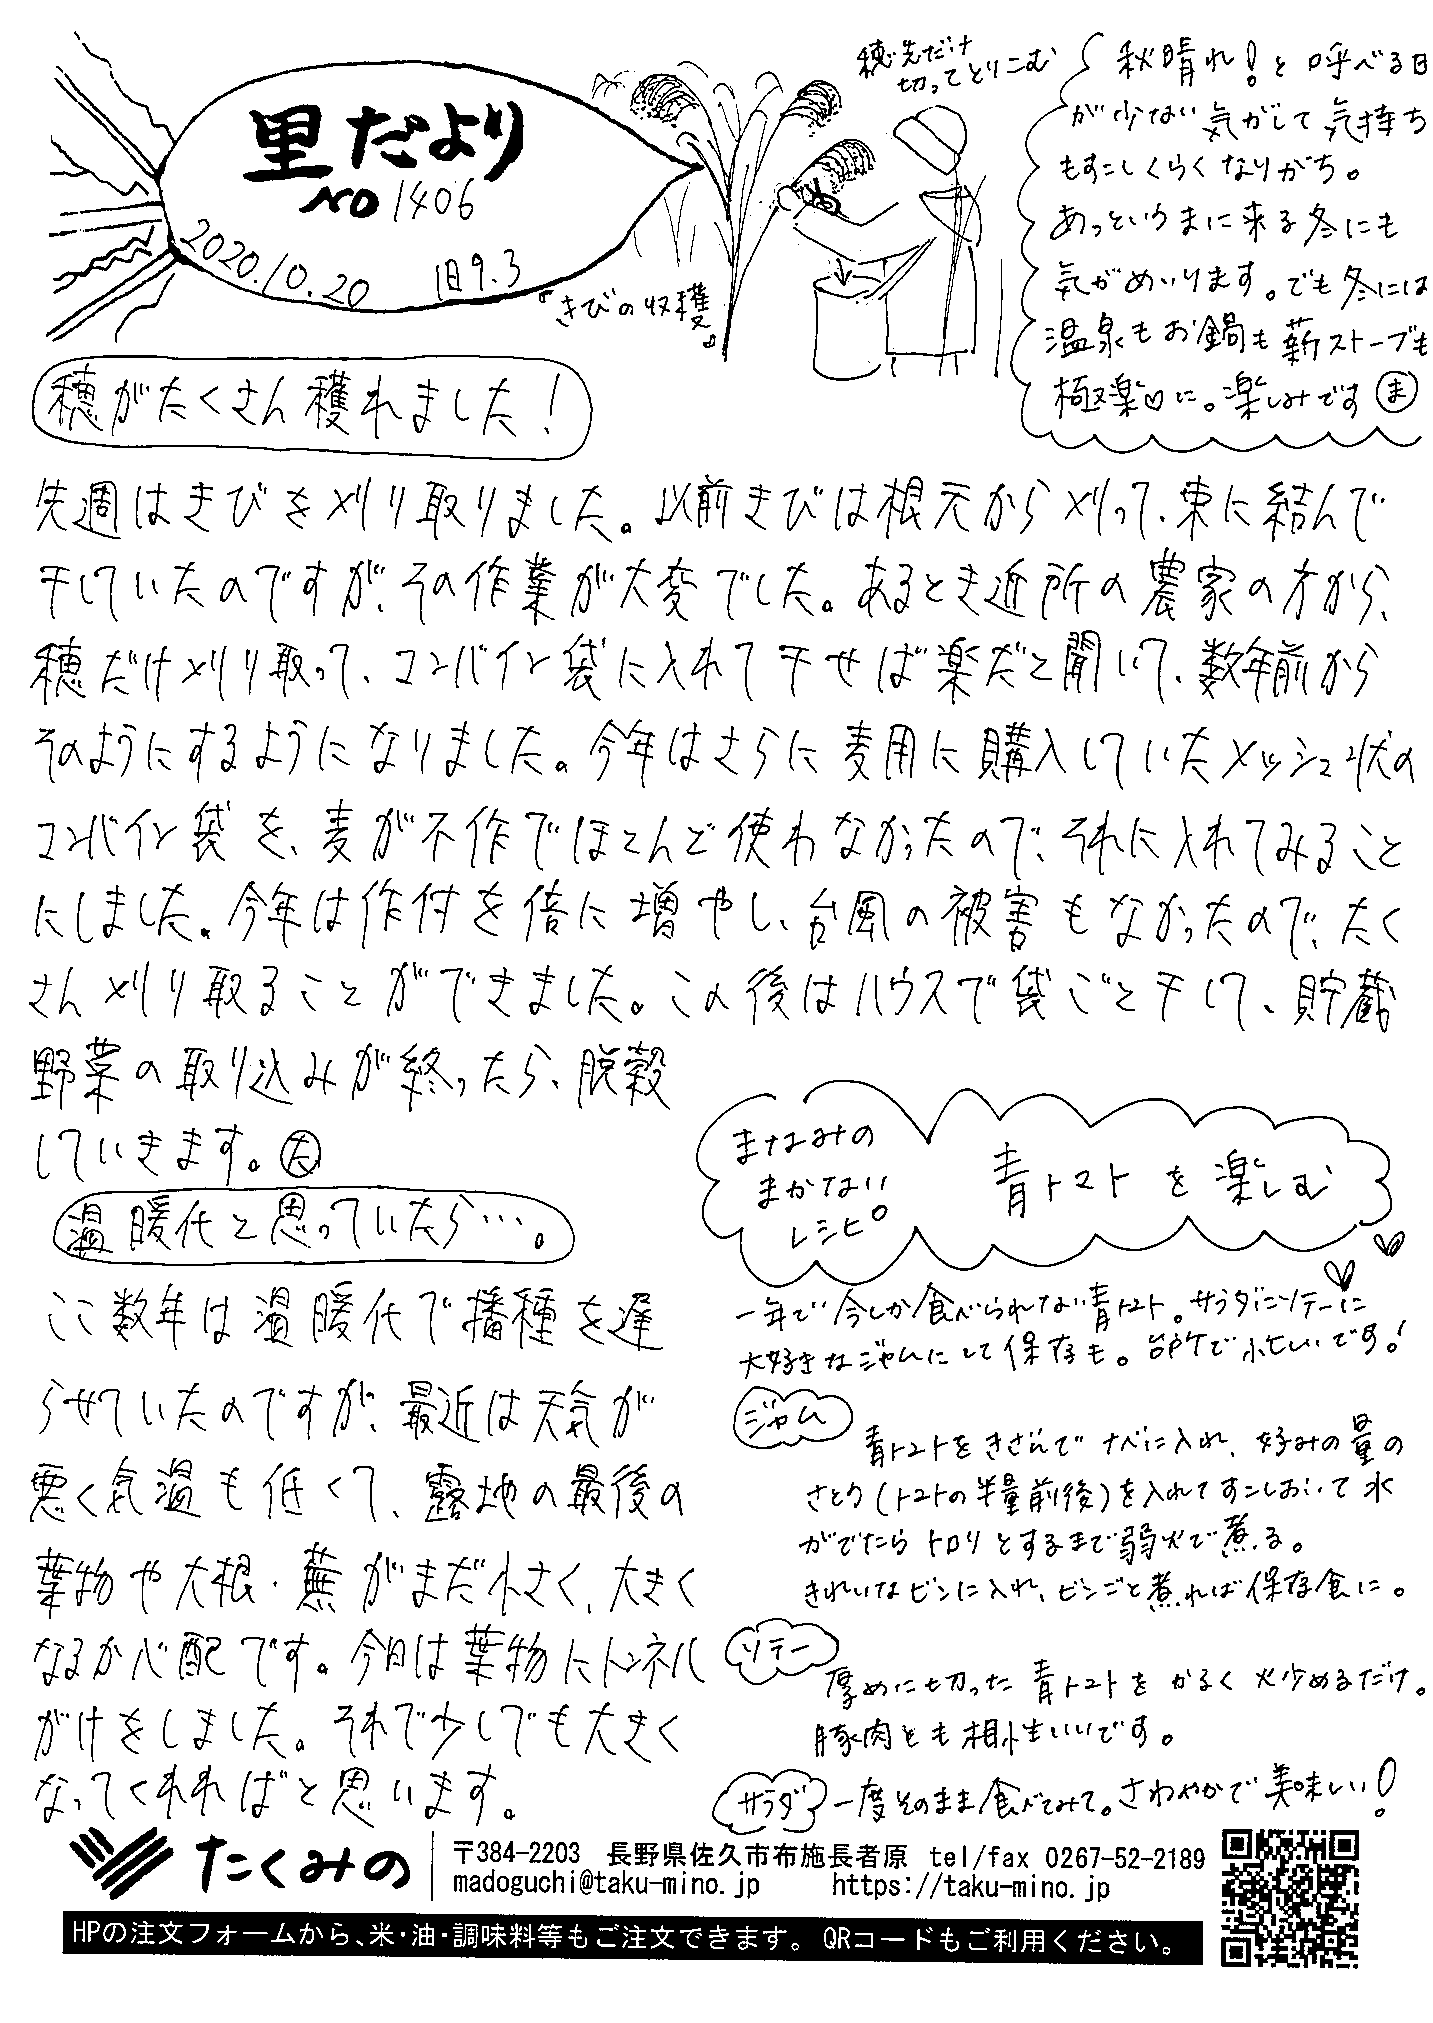 里だより
NO 1406
2020.10.20 旧9.3
「きびの収穫」
穂先だけ
切ってとりこむ
秋晴れ!と呼べる日
が少ない気がして気持ち
もすこしくらくなりがち。
あっというまに来る冬にも
気がめいります。でも冬には
温泉もお鍋も薪ストーブも
極楽♡に。楽しみです ま
穂がたくさん穫れました!
先週はきびを刈り取りました。以前きびは根元から刈って、束に結んで
干していたのですが、その作業が大変でした。あるとき近所の農家の方から、
穂だけ刈り取って、コンバイン袋に入れて干せば楽だと聞いて、数年前から
そのようにするようになりました。今年はさらに麦用に購入していたメッシュ状の
コンバイン袋を、麦が不作でほとんど使わなかったので、それに入れてみること
にしました。今年は作付を倍に増やし、台風の被害もなかったので、たく
さん刈り取ることができました。この後はハウスで袋ごと干して、貯蔵
野菜の取り込みが終ったら、脱穀
していきます。た
温暖化と思っていたら…。
ここ数年は温暖化で播種を遅
らせていたのですが、最近は天気が
悪く気温も低くて、露地の最後の
葉物や大根・蕪がまだ小さく、大きく
なるか心配です。今日は葉物にトンネル
がけをしました。それで少しでも大きく
なってくれればと思います。
まなみの
まかない
レシピ
青トマトを楽しむ
一年で今しか食べられない青トマト。サラダにソテーに
大好きなジャムにして保存も。台所ケで忙しいです!
ジャム
青トマトをきざんでナベに入れ、好みの量の
さとう(トマトの半量前後)を入れてすこしおいて水
がでたらトロリとするまで弱火で煮る。
きれいなビンに入れ、ビンごと煮れば保存食に。
ソテー
厚めに切った青トマトをかるく炒めるだけ。
豚肉とも相性いいです。
サラダ 一度そのまま食べてみて。さわやかで美味しい!
たくみの
〒384-2203 長野県佐久市布施長者原 tel/fax 0267-52-2189
madoguchi@taku-mino.jp https://taku-mino.jp
HPの注文フォームから、米・油・調味料等もご注文できます。QRコードもご利用ください。